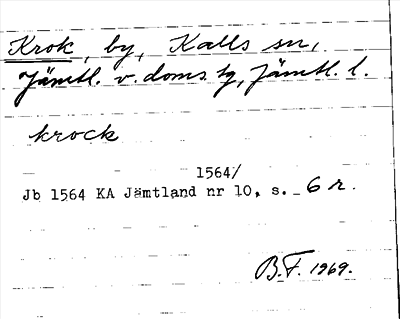 Krok, by, Kalls sn,
Jämtl. v. doms. tg, Jämtl. l.
krock
1564/
Jb 1564 KA Jämtland nr 10, s. 6 r.
B.F. 1969.